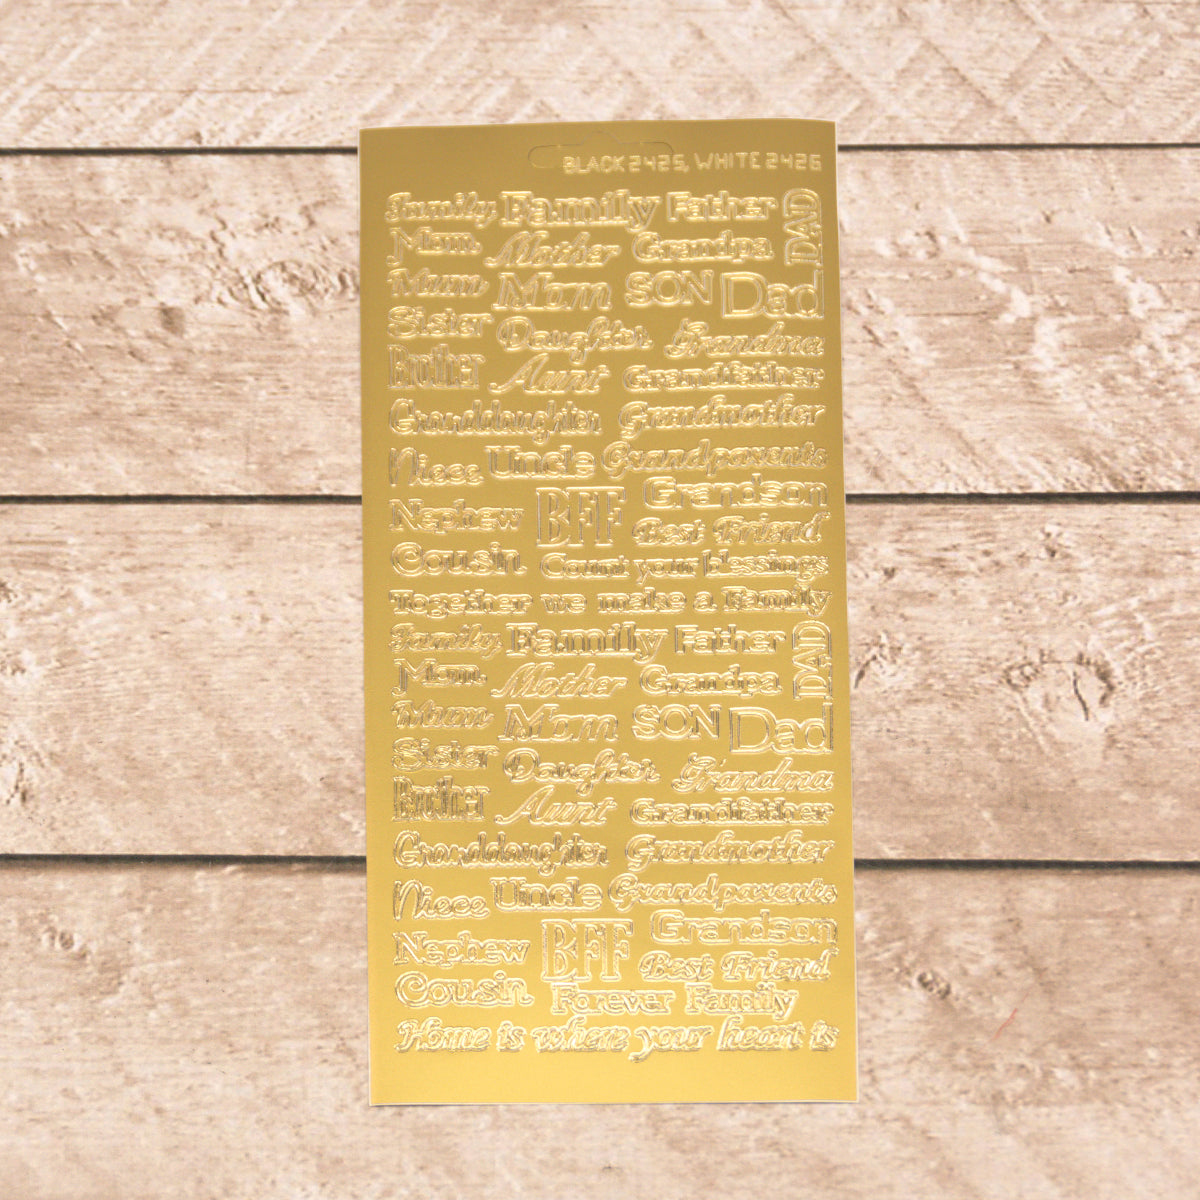 BLACK 2425, WHITE 2426
Family Family Father DAD
Mom Mother Grandpa
Mum Mom SON Dad
Sister Daughter Grandma
Brother Aunt Grandfather
Granddaughter Grandmother
Niece Uncle Grandparents
Nephew BFF Grandson
Best Friend
Cousin Count your blessings
Together we make a Family
Family Family Father DAD
Mom Mother Grandpa
Mum Mom SON Dad
Sister Daughter Grandma
Brother Aunt Grandfather
Granddaughter Grandmother
Niece Uncle Grandparents
Nephew BFF Grandson
Best Friend
Cousin Forever Family
Home is where your heart is